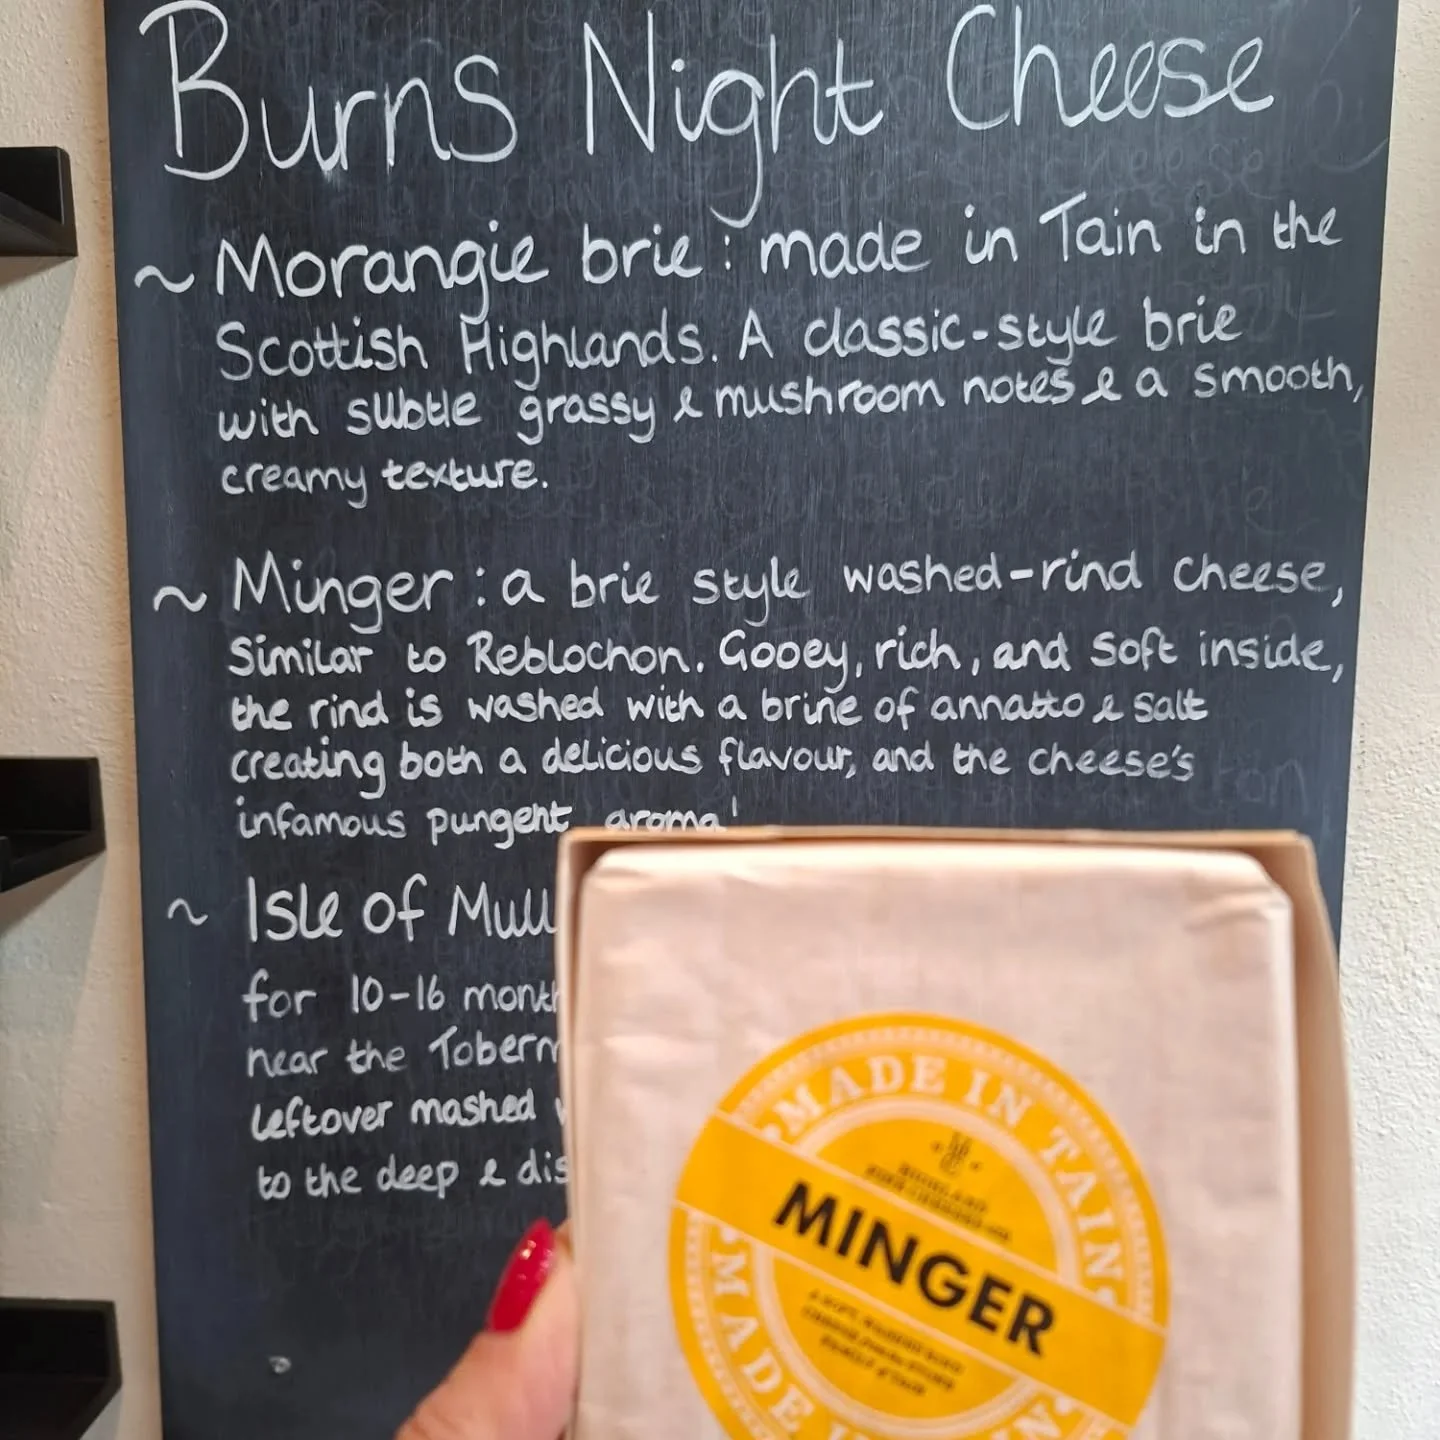 Burns Night Cheese
~ Morangie brie : made in Tain in the
Scottish Highlands. A classic-style brie
with subtle grassy & mushroom notes & a smooth,
creamy texture.
~ Minger : a brie style washed-rind cheese,
similar to Reblochon. Gooey, rich, and soft inside,
the rind is washed with a brine of annatto & salt
creating both a delicious flavour, and the cheese's
infamous pungent aroma!
~ Isle of Mull
for 10-16 month
near the Toberm
leftover mashed
to the deep & dis
MADE IN TAIN
HIGHLAND
FINE CHEESES
MINGER
MADE